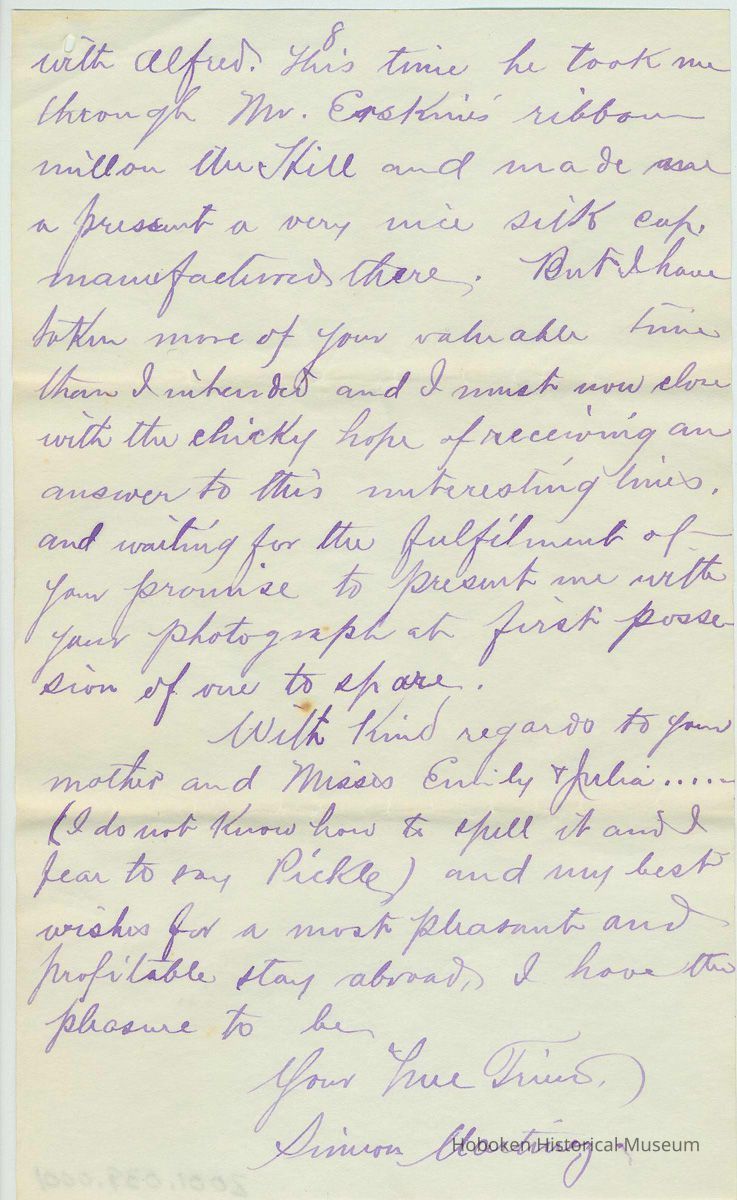 8
with Alfred. This time he took me
through Mr. Erskine's ribbon
mill on the Hill and made me
a present a very nice silk cap,
manufactured there. But I have
taken more of your valuable time
than I intended and I must now close
with the chicky hope of receiving an
answer to this uninteresting lines,
and waiting for the fulfilment of
your promise to present me with
your photograph at first posse-
sion of one to spare.
With Kind regards to your
mother and Misses Emily & Julia .....
(I do not Know how to spell it and I
fear to say Pickle) and my best
wishes for a most pleasant and
profitable stay abroad, I have the
pleasure to be
Your True Friend,
Simon
Hoboken Historical Museum
2001.039.0001